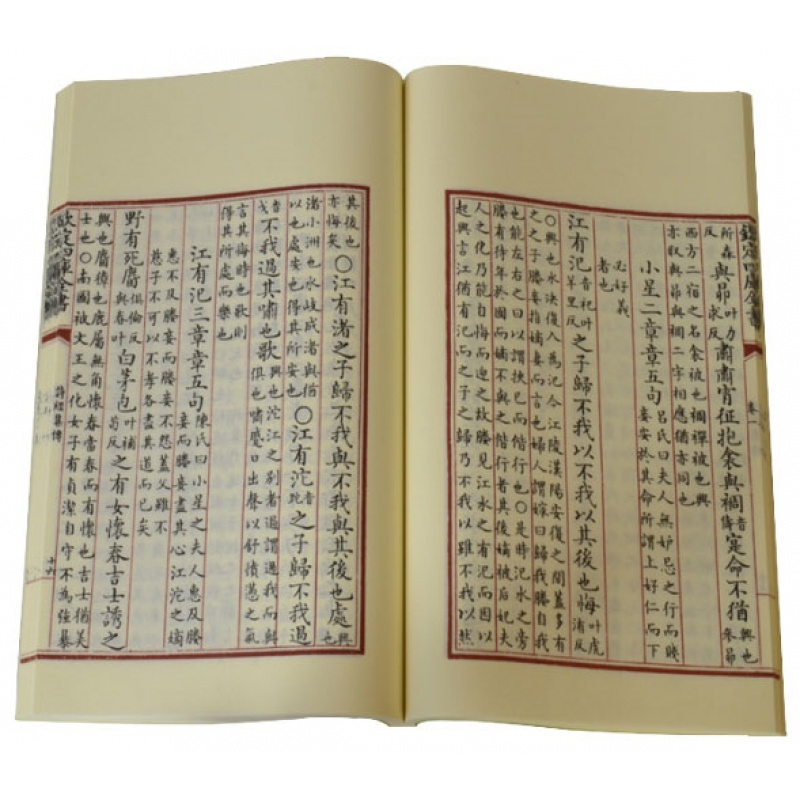 欽定四庫全書
卷一
所森反與昴叶力求反肅肅宵征抱衾與裯音儔寔命不猶興也參昴
西方二宿之名衾被也裯襌被也興
亦取與昴與裯二字相應猶亦同也
小星二章章五句呂氏曰夫人無妒忌之行而賤
妾安於其命所謂上好仁而下
必好義
者也
江有汜音祀叶羊里反之子歸不我以不我以其後也悔叶虎洧反
○興也水決復入為汜今江陵漢陽安復之間蓋多有
之之子媵妾指嫡妻而言也婦人謂嫁曰歸我媵自我
也能左右之曰以謂挾己而偕行也○是時汜水之旁
媵有待年於國而嫡不與之偕行者其後嫡被后妃夫
人之化乃能自悔而迎之故媵見江水之有汜而因以
起興言江猶有汜而之子之歸乃不我以雖不我以然
其後也
亦悔矣○江有渚之子歸不我與不我與其後也處興也
渚小洲也水岐成渚與猶
以也處安也得其所安也○江有沱音陀之子歸不我過
音戈不我過其嘯也歌興也沱江之別者過謂過我而與
俱也嘯蹙口出聲以舒憤懣之氣
言其悔時也歌則
得其所處而樂也
江有汜三章章五句陳氏曰小星之夫人惠及媵
妾而媵妾盡其心江沱之嫡
惠不及媵妾而媵妾不怨蓋父雖不
慈子不可以不孝各盡其道而已矣
野有死麕俱倫反與春叶白茅包叶補苟反之有女懷春吉士誘之
興也麕獐也鹿屬無角懷春當春而有懷也吉士猶美
士也○南國被文王之化女子有貞潔自守不為强暴
欽定四庫全書
詩經集傳